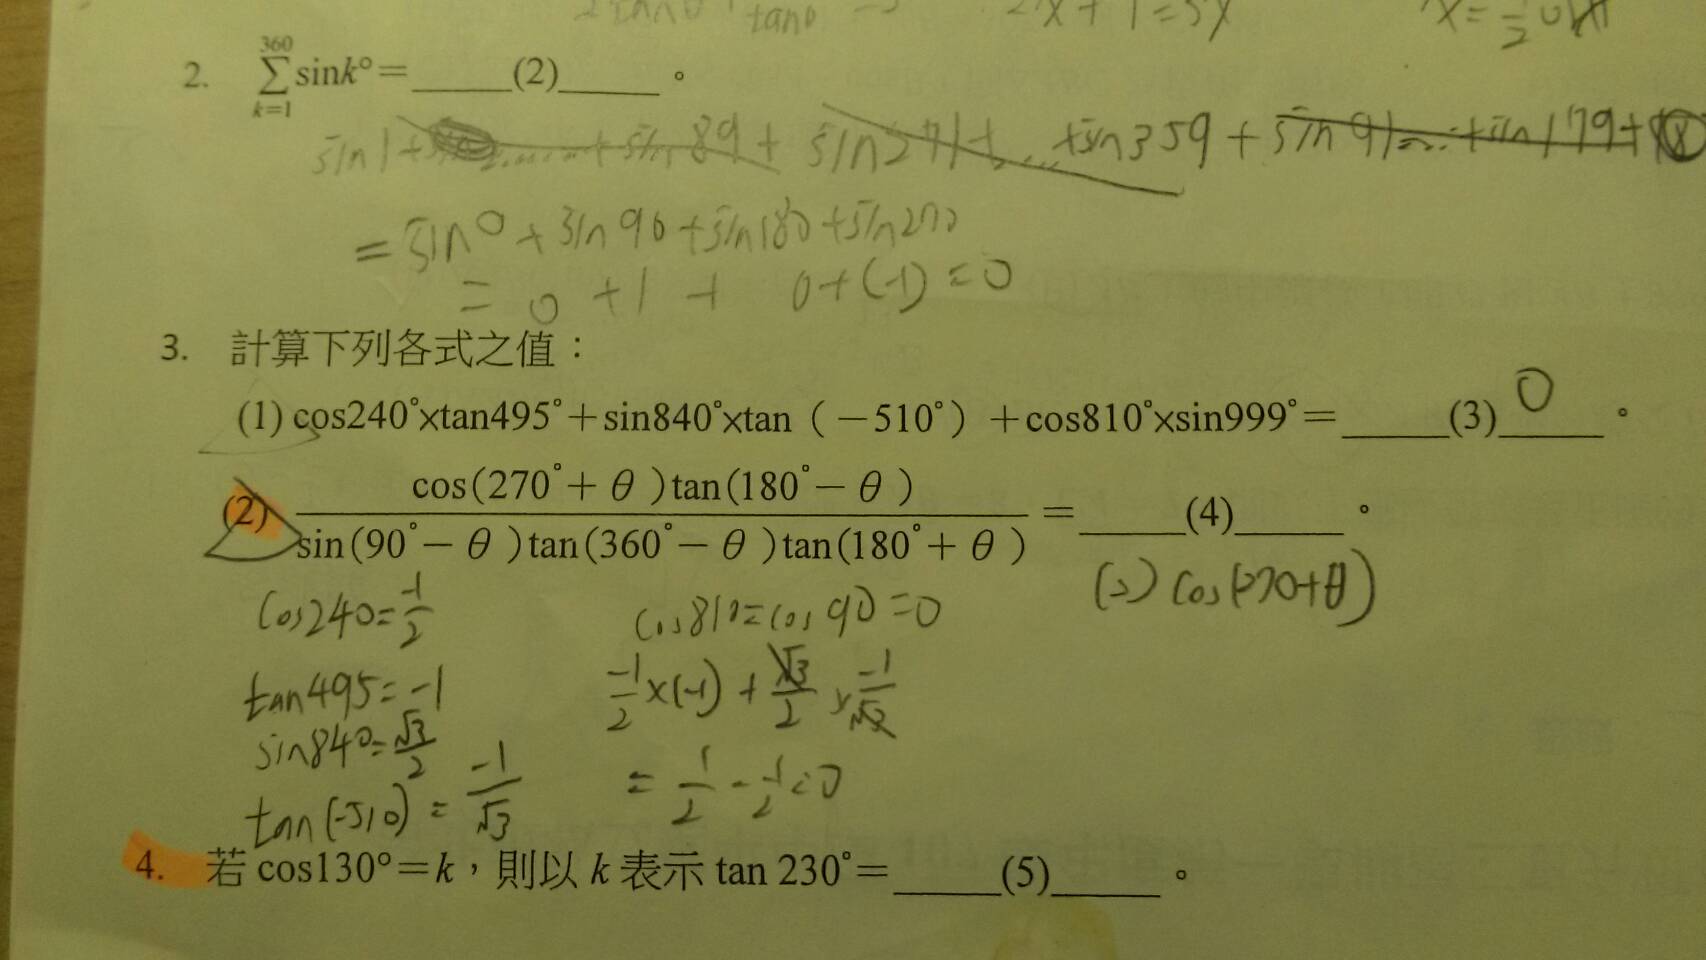 2x+1=5x
2. ∑_{k=1}^{360} sink°=_____(2)_____。
sin1+......+sin89+sin271+...+sin359+sin91+...+sin179+
=sin0+sin90+sin180+sin270
=0+1+0+(-1)=0
3. 計算下列各式之值：
(1) cos240°×tan495°+sin840°×tan（−510°）+cos810°×sin999°=_____(3)_____。 0
(2) cos(270°+θ)tan(180°−θ) / sin(90°−θ)tan(360°−θ)tan(180°+θ) =_____(4)_____。
(2) cos(270+θ)
cos240=-1/2
cos810=cos90=0
tan495=-1
-1/2×(-1)+√3/2×-1/√3
sin840=√3/2
=1/2-1/2=0
tan(-510)=-1/√3
4. 若 cos130°=k，則以 k 表示 tan 230°=_____(5)_____。